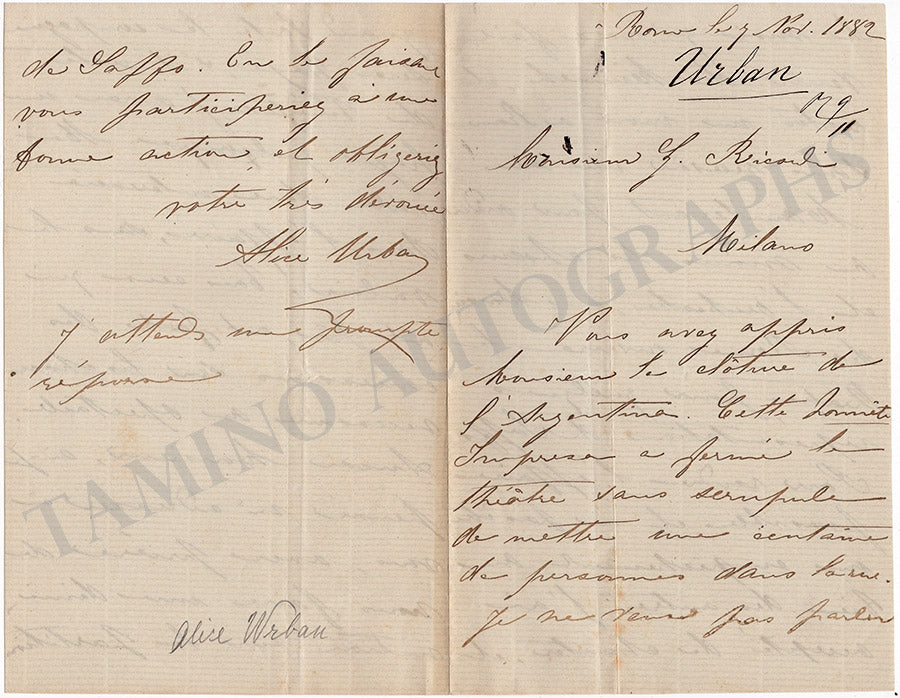 Rome le 7 Nov. 1882
Urban
R 9/11
Monsieur G. Ricordi
Milano
Vous avez appris
Monsieur la clôture de
l'Argentina. Cette honnête
Impresa a fermé le
théâtre sans scrupule
de mettre une centaine
de personnes dans la rue.
Je ne veux pas parler
de Saffo. En le faisant
vous participeriez à une
bonne action et obligeriez
votre très dévouée
Alice Urban
J'attends une prompte
réponse
Alice Urban
TAMINO AUTOGRAPHS